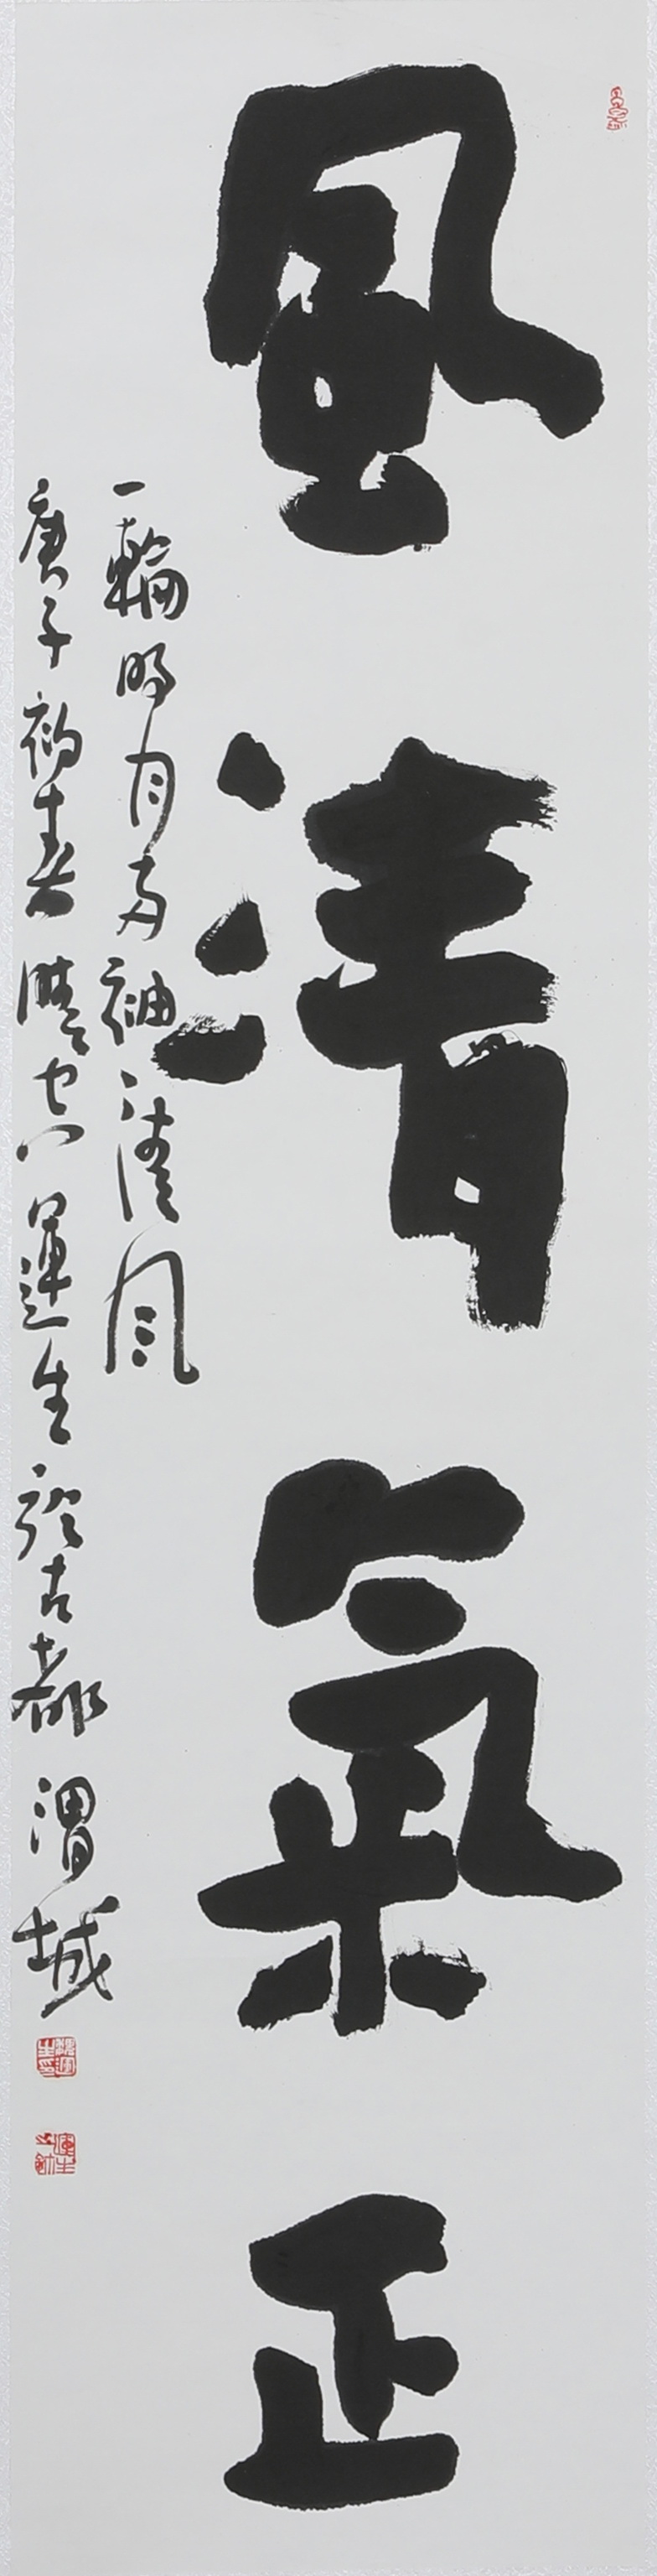 風清氣正
一輪明月兩袖清風
庚子初春 運生於古都渭城